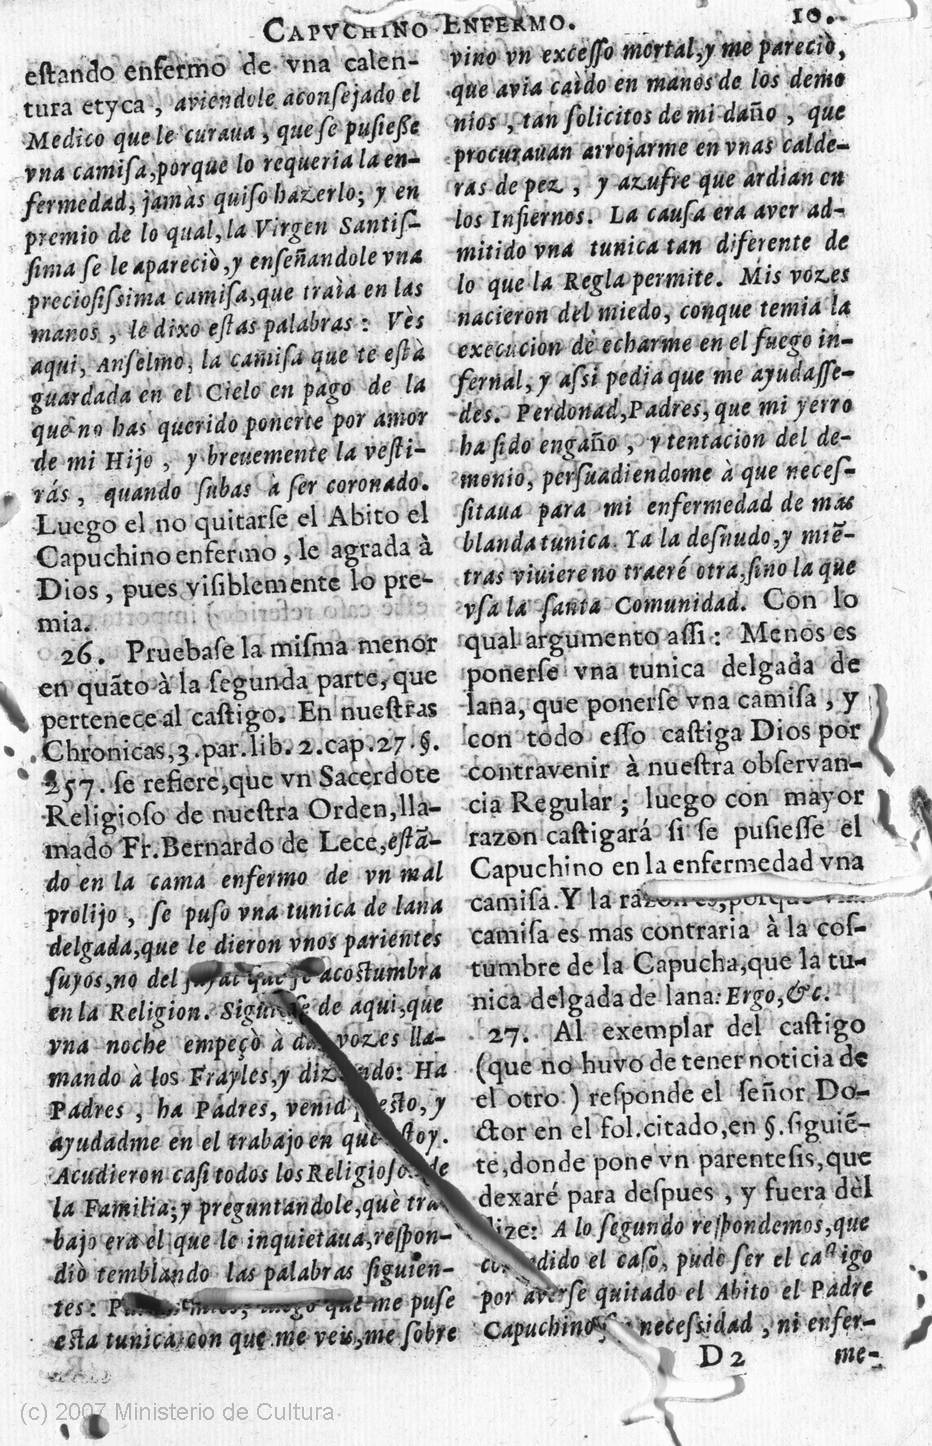 CAPVCHINO ENFERMO. 10.
eſtando enfermo de vna calen-
tura etyca, aviendole aconſejado el
Medico que le curaua, que ſe puſieſſe
vna camiſa, porque lo requeria la en-
fermedad, jamàs quiſo hazerlo; y en
premio de lo qual, la Virgen Santiſ-
ſima ſe le apareciò, y enſeñandole vna
precioſiſsima camiſa, que traìa en las
manos, le dixo eſtas palabras: Vès
aqui, Anſelmo, la camiſa que te eſtà
guardada en el Cielo en pago de la
que no has querido ponerte por amor
de mi Hijo, y breuemente la veſti-
rás, quando ſubas à ſer coronado.
Luego el no quitarſe el Abito el
Capuchino enfermo, le agrada à
Dios, pues viſiblemente lo pre-
mia.
26. Pruebaſe la miſma menor
en quãto à la ſegunda parte, que
pertenece al caſtigo. En nueſtras
Chronicas, 3. par. lib. 2. cap. 27. §.
257. ſe refiere, que vn Sacerdote
Religioſo de nueſtra Orden, lla-
mado Fr. Bernardo de Lece, eſtã-
do en la cama enfermo de vn mal
prolijo, ſe puſo vna tunica de lana
delgada, que le dieron vnos parientes
ſuyos, no del que ſe acoſtumbra
en la Religion. de aqui, que
vna noche empeçò à dar vozes lla-
mando à los Frayles, y diziendo: Ha
Padres, ha Padres, venid preſto, y
ayudadme en el trabajo en que eſtoy.
Acudieron caſi todos los Religioſos de
la Familia; y preguntandole, què tra-
bajo era el que le inquietaua, reſpon-
diò temblando las palabras ſiguien-
tes: luego que me puſe
eſta tunica con que me veis, me ſobre
vino vn exceſſo mortal, y me pareciò,
que avia caìdo en manos de los demo
nios, tan ſolicitos de mi daño, que
procurauan arrojarme en vnas calde-
ras de pez, y azufre que ardian en
los Infiernos. La cauſa era aver ad-
mitido vna tunica tan diferente de
lo que la Regla permite. Mis vozes
nacieron del miedo, conque temia la
execucion de echarme en el fuego in-
fernal, y aſsi pedia que me ayudaſſe-
des. Perdonad, Padres, que mi yerro
ha ſido engaño, y tentacion del de-
monio, perſuadiendome à que neceſ-
ſitaua para mi enfermedad de mas
blanda tunica. Ya la deſnudo, y miẽ-
tras viuiere no traeré otra, ſino la que
vſa la ſanta Comunidad. Con lo
qual argumento aſſi: Menos es
ponerſe vna tunica delgada de
lana, que ponerſe vna camiſa, y
con todo eſſo caſtiga Dios por
contravenir à nueſtra obſervan-
cia Regular; luego con mayor
razon caſtigará ſi ſe puſieſſe el
Capuchino en la enfermedad vna
camiſa. Y la razon es, porque vna
camiſa es mas contraria à la coſ-
tumbre de la Capucha, que la tu-
nica delgada de lana: Ergo, &c.
27. Al exemplar del caſtigo
(que no huvo de tener noticia de
el otro) reſponde el ſeñor Do-
ctor en el fol. citado, en §. ſiguiẽ-
te, donde pone vn parenteſis, que
dexaré para deſpues, y fuera dèl
dize: A lo ſegundo reſpondemos, que
el caſo, pudo ſer el caſtigo
por averſe quitado el Abito el Padre
Capuchino neceſsidad, ni enfer-
D 2 me-
(c) 2007 Ministerio de Cultura